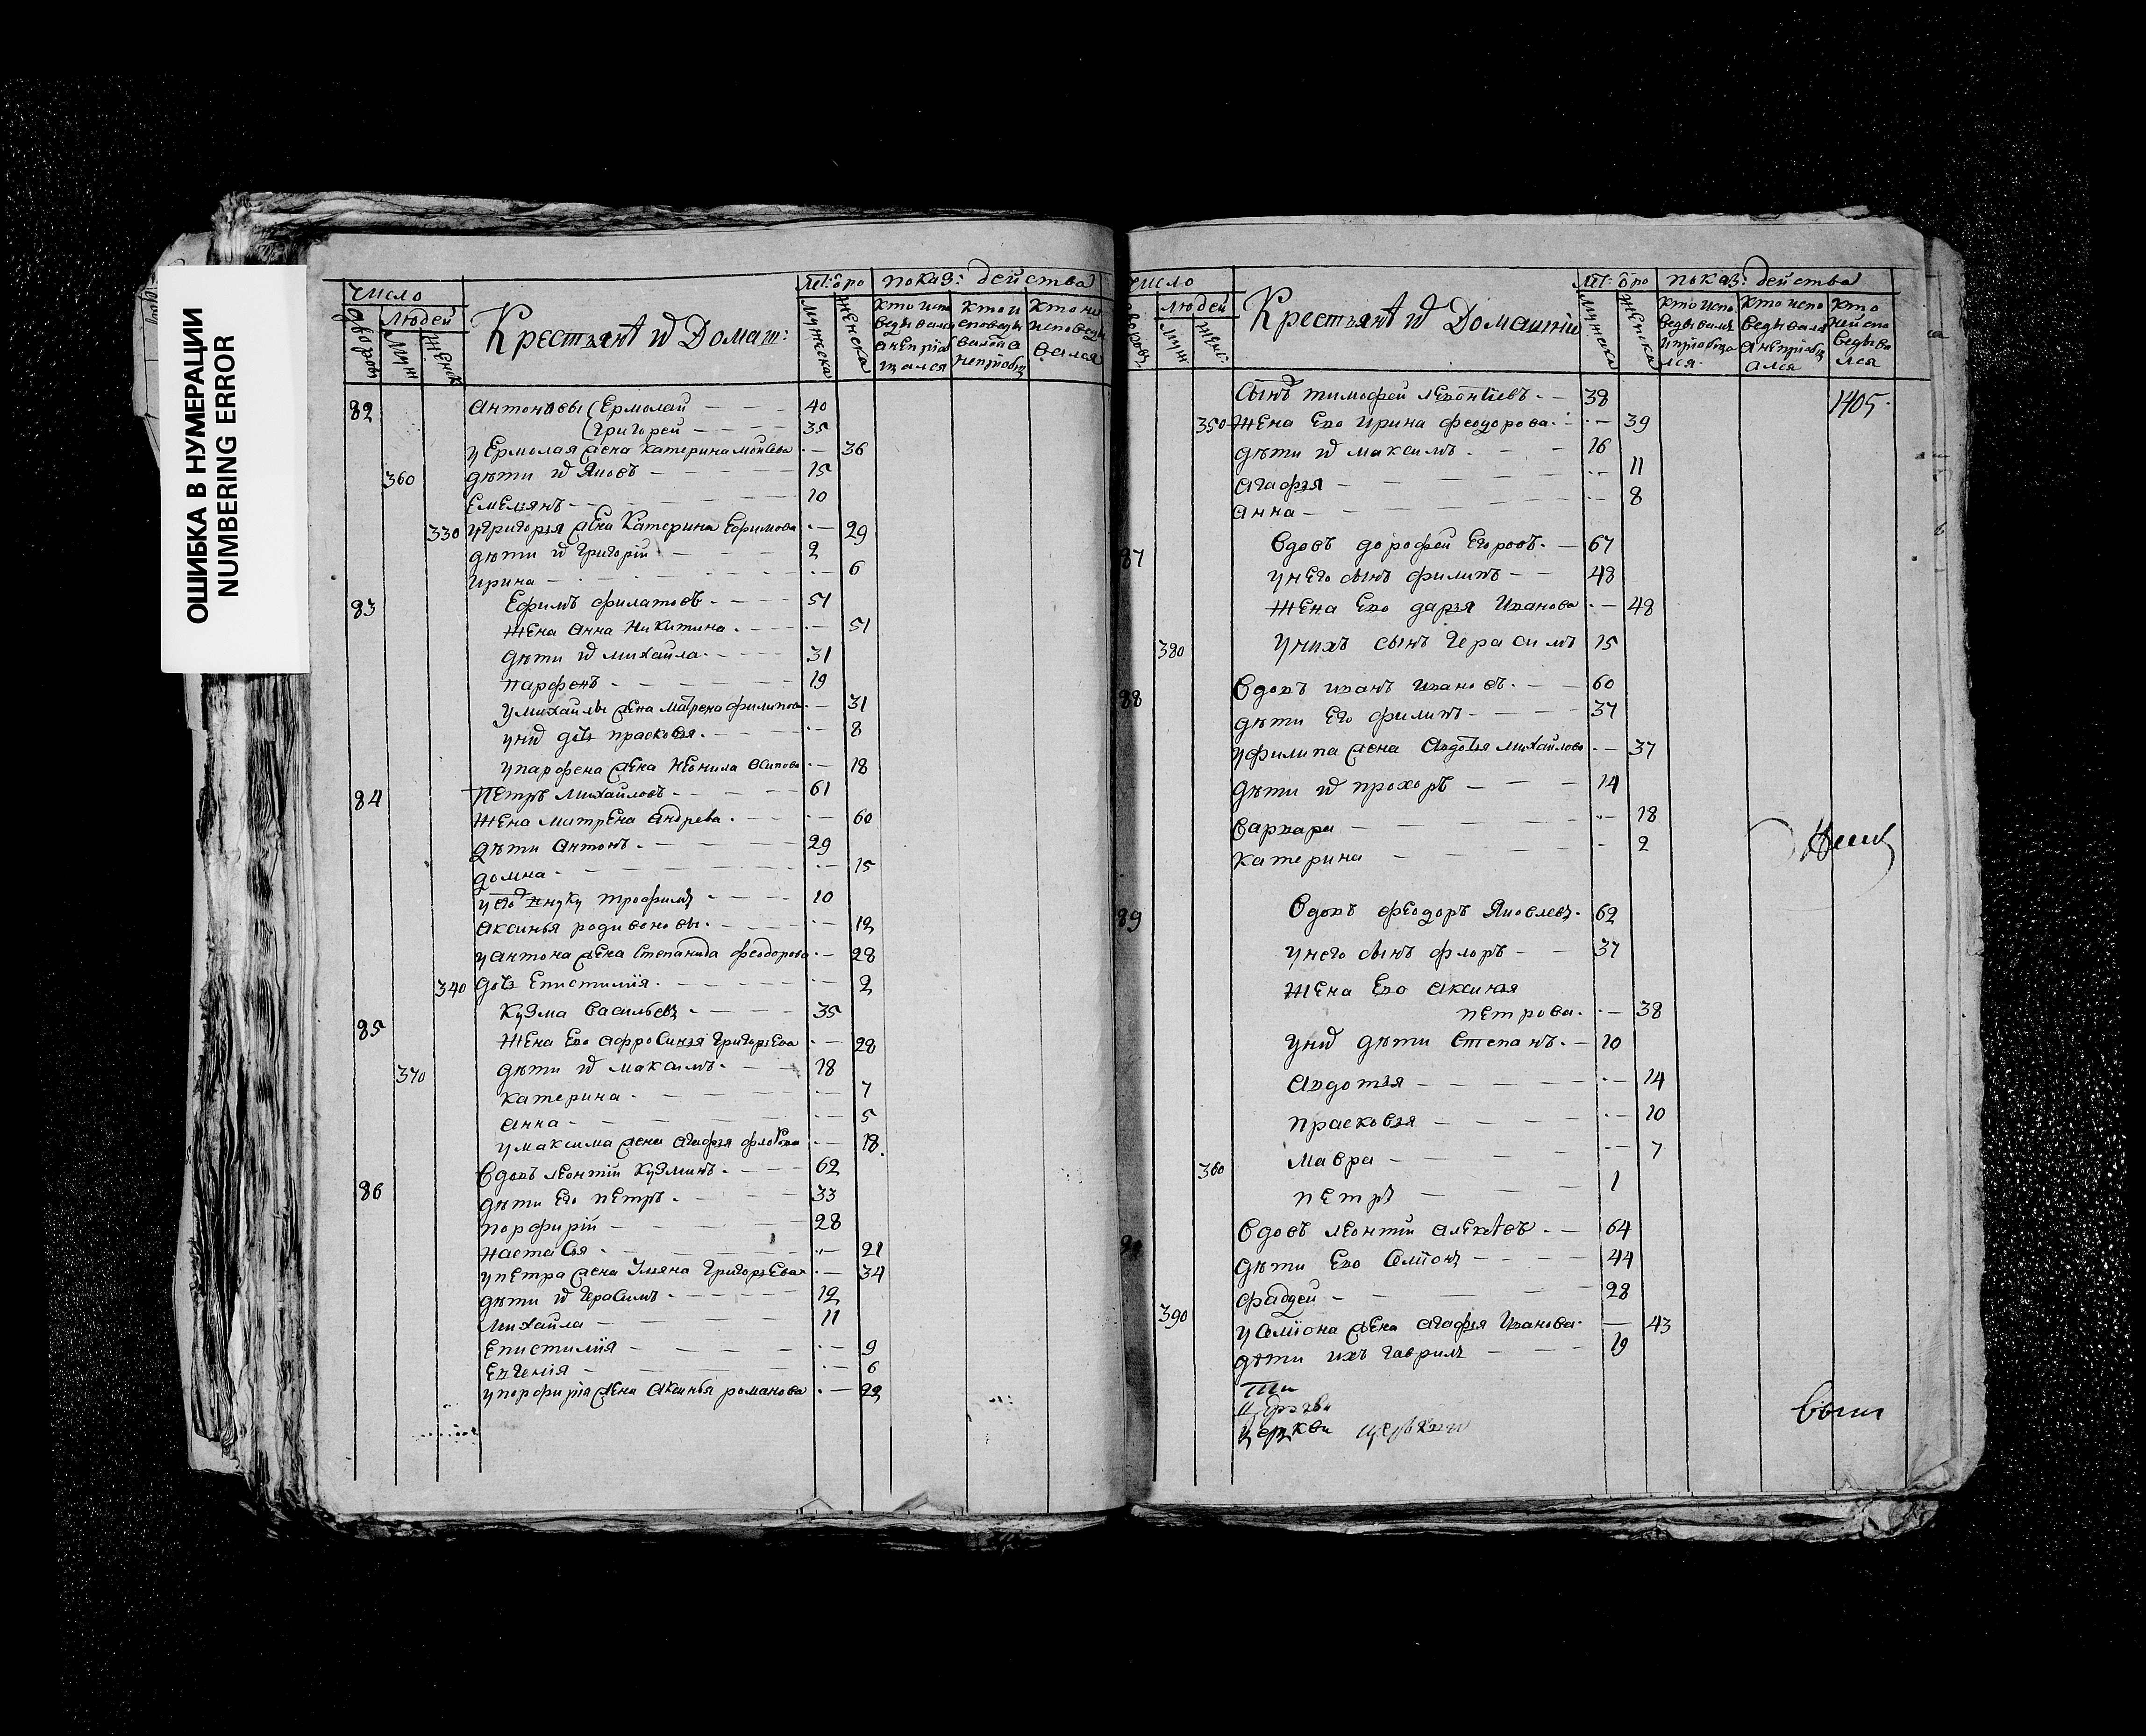 ОШИБКА В НУМЕРАЦИИ
NUMBERING ERROR
Число
Дворовъ
Людей
Муж
Женск
Крестьянъ и Домаш:
Лѣт: бро
Мужска
Женска
показ: действа
кто испо
ведывался
а не пріоб
щался
кто и
споведы
вался а
не пріобщ
кто не
исповеды
вался
82 Антоновы Ермолай 40
Григорей 35
у Ермолая жена Катерина 36
360 дѣти их Яковъ 15
Емельянъ 10
330 у Григорья жена Катерина Ефимова 29
дѣти их Григорій 2
Ирина 6
83 Ефимъ филатовъ 51
жена Анна Никитина 51
дѣти их Михайла 31
парфенъ 19
у Михайлы жена Матрена филипова 31
у них дочь прасковья 8
у парфена жена Неонила Осипова 18
84 Петръ Михайловъ 61
жена Митрена Андрева 60
дѣти Антонъ 29
домна 15
у его внуку трофимъ 10
Аксинья родивоновы 12
у Антона жена Степанида феодорова 28
340 дочь Епистимія 2
85 Кузма Васильевъ 35
жена Ево Афросинья Григорьева 28
370 дѣти их Максимъ 18
Катерина 7
Анна 5
у Максима жена Агафья 18
86 Вдовъ Леонтій Кузминъ 62
дѣти Его Петръ 33
порфирій 28
Настасья 21
у петра жена Ульяна Григорьева 34
дѣти их Герасимъ 12
Михайла 11
Епистимія 9
Евгенія 6
у порфирія жена Аксинья романова 22
Число
Дворовъ
Людей
Муж
Женс:
Крестьянъ и Домашнихъ
Лѣт: бро
Мужска
Женска
показ: действа
кто испо
ведывался
и пріобща
лся
кто испо
ведывался
а не пріобщ
ался
кто
не испо
ведыва
лся
сынъ тимофей Леонтіевъ 38
1405
350 жена Ево Ирина феодорова 39
дѣти их Максимъ 16
Агафья 11
Анна 8
87 Вдовъ дорофей Егоровъ 67
у него сынъ филипъ 48
жена Ево дарья Иванова 48
380 у нихъ сынъ Герасимъ 15
88 Вдовъ иванъ ивановъ 60
дѣти Его филипъ 37
у филипа жена Авдотья Михайлова 37
дѣти их прохоръ 14
Варвара 18
Катерина 2
89 Вдовъ феодоръ Яковлевъ 62
у него сынъ флоръ 37
жена Ево Аксинья
петрова 38
у них дѣти Степанъ 10
Авдотья 14
прасковья 10
360 Мавра 7
петръ 1
90 Вдовъ Леонтій 64
дѣти Ево Семіонъ 44
фаддей 28
390 у Семіона жена Агафья Иванова 43
дѣти ихъ Гаврилъ 19
церкви